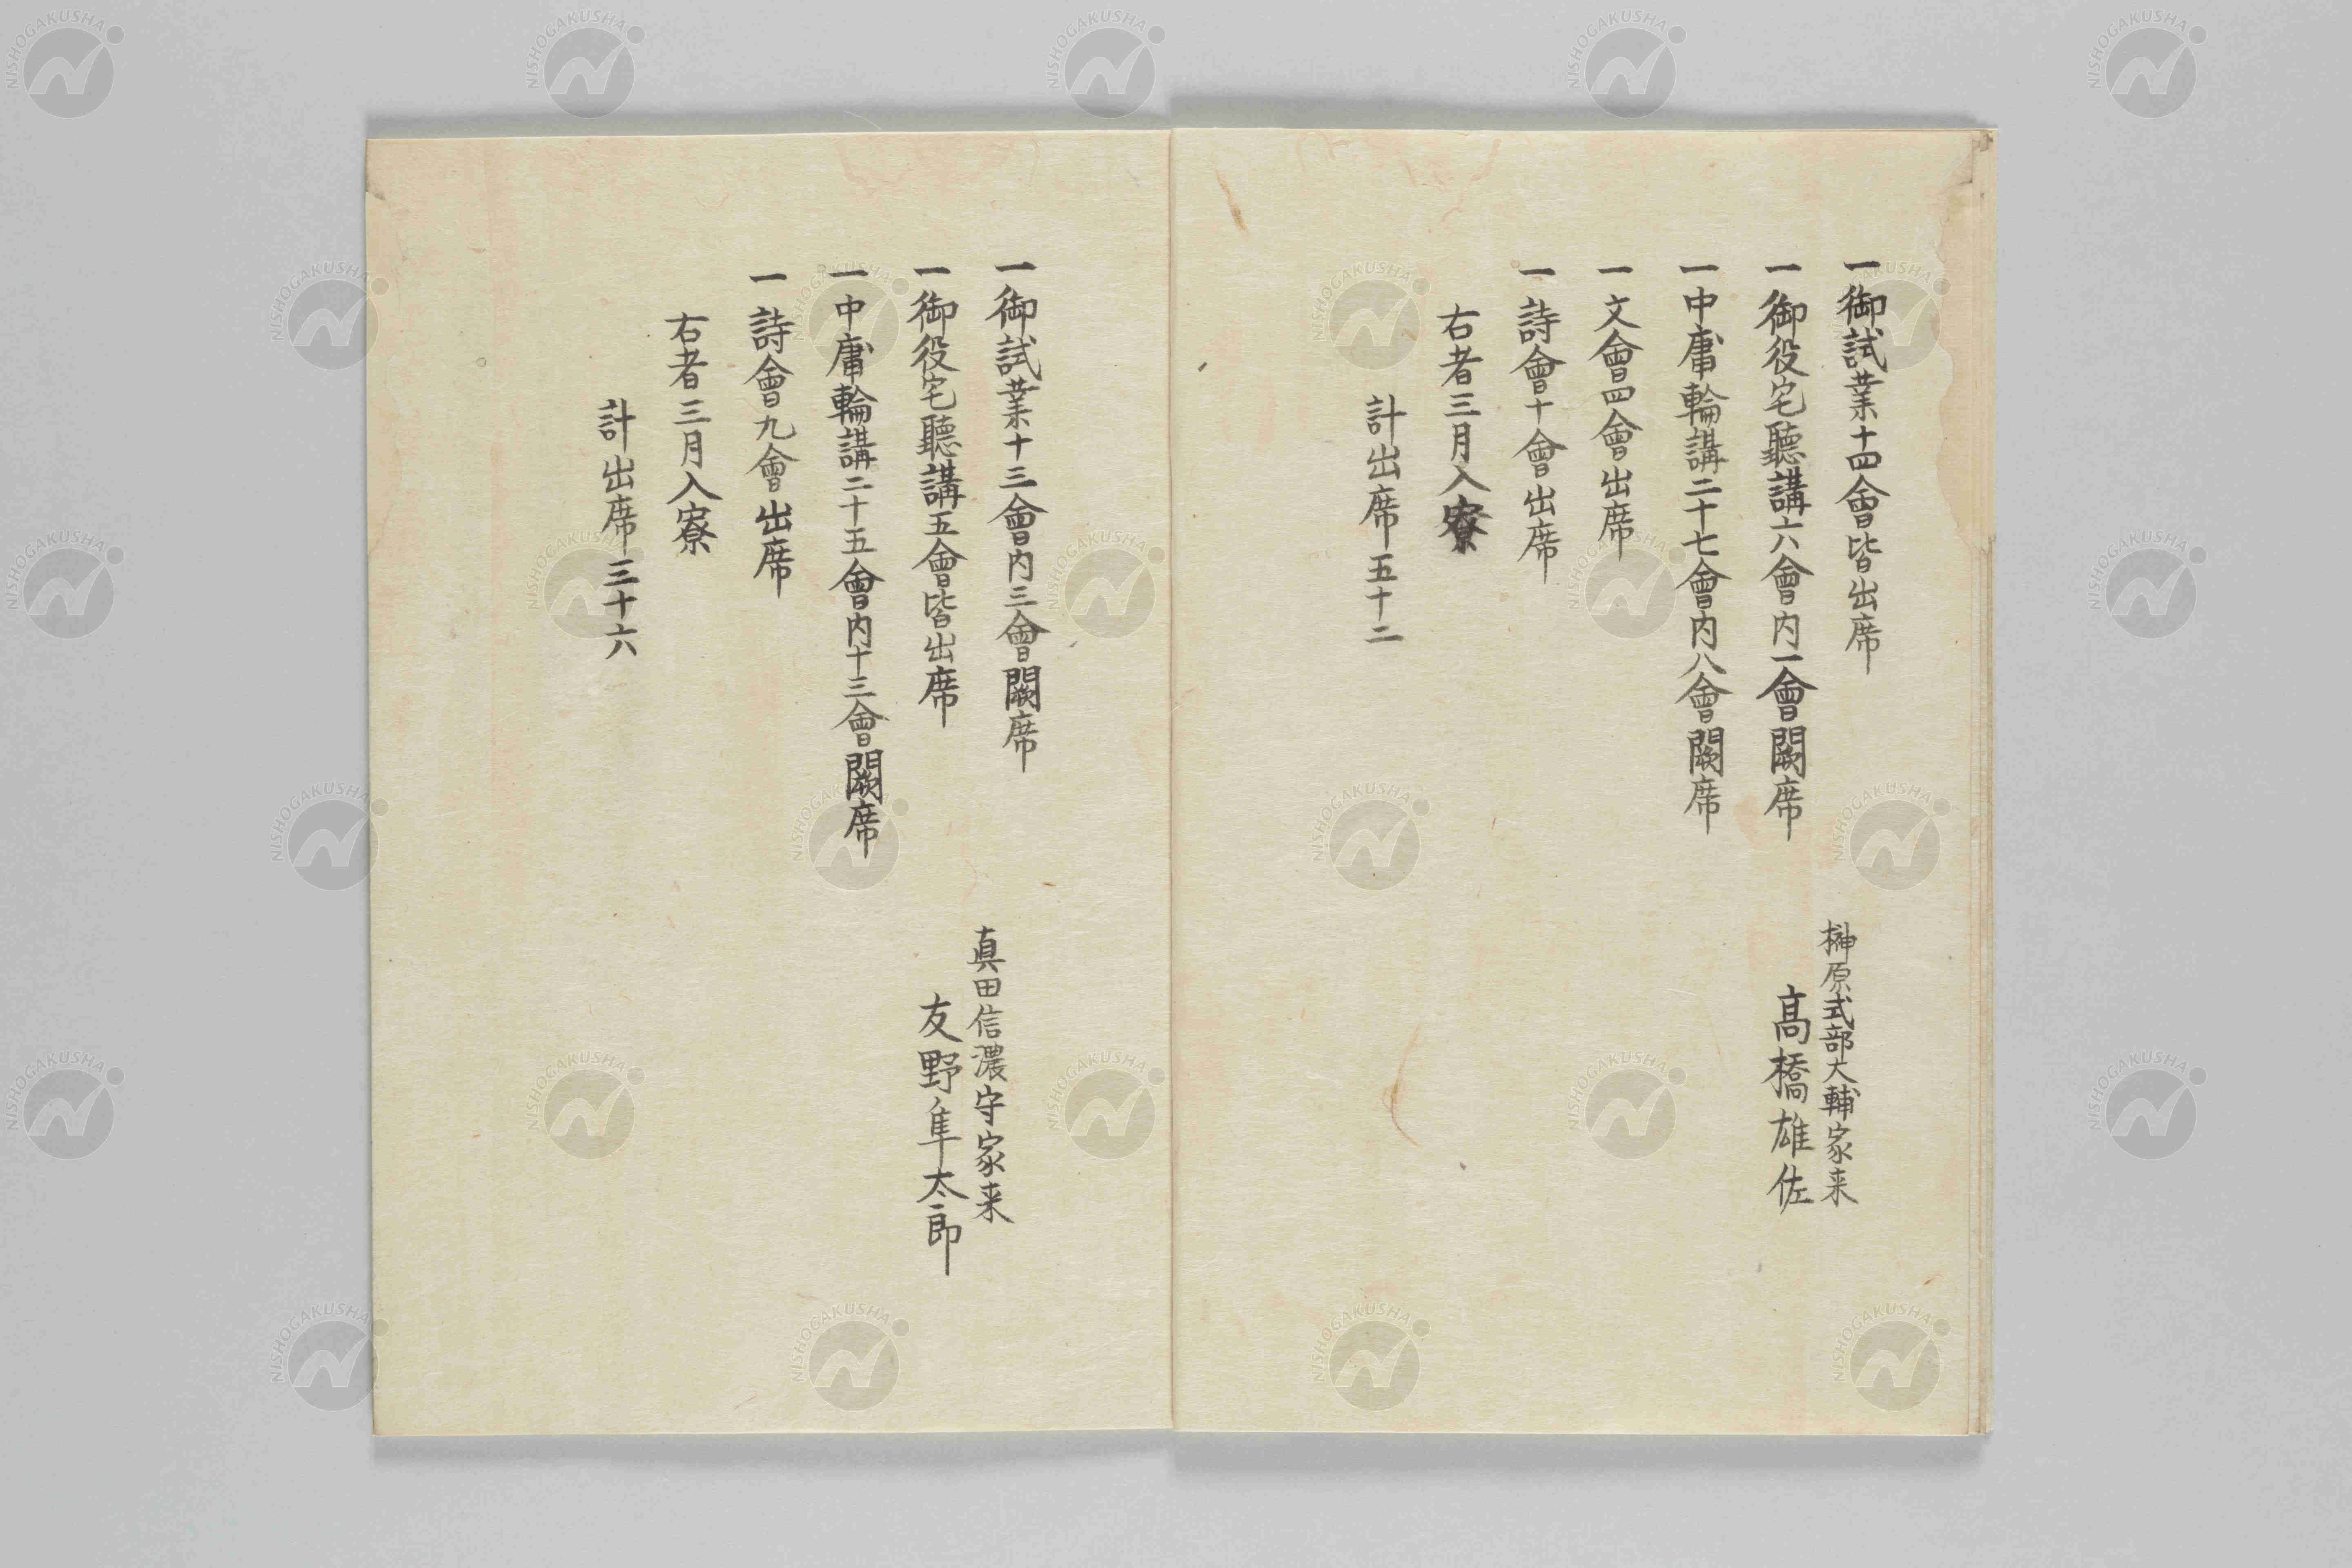 一御試業十四會皆出席
榊原式部大輔家来
髙橋雄佐
一御役宅聽講六會内一會闕席
一中庸輪講二十七會内八會闕席
一文會四會出席
一詩會十會出席
右者三月入寮
計出席五十二
一御試業十三會内三會闕席
真田信濃守家来
友野隼太郎
一御役宅聽講五會皆出席
一中庸輪講二十五會内十三會闕席
一詩會九會出席
右者三月入寮
計出席三十六
NISHOGAKUSHA